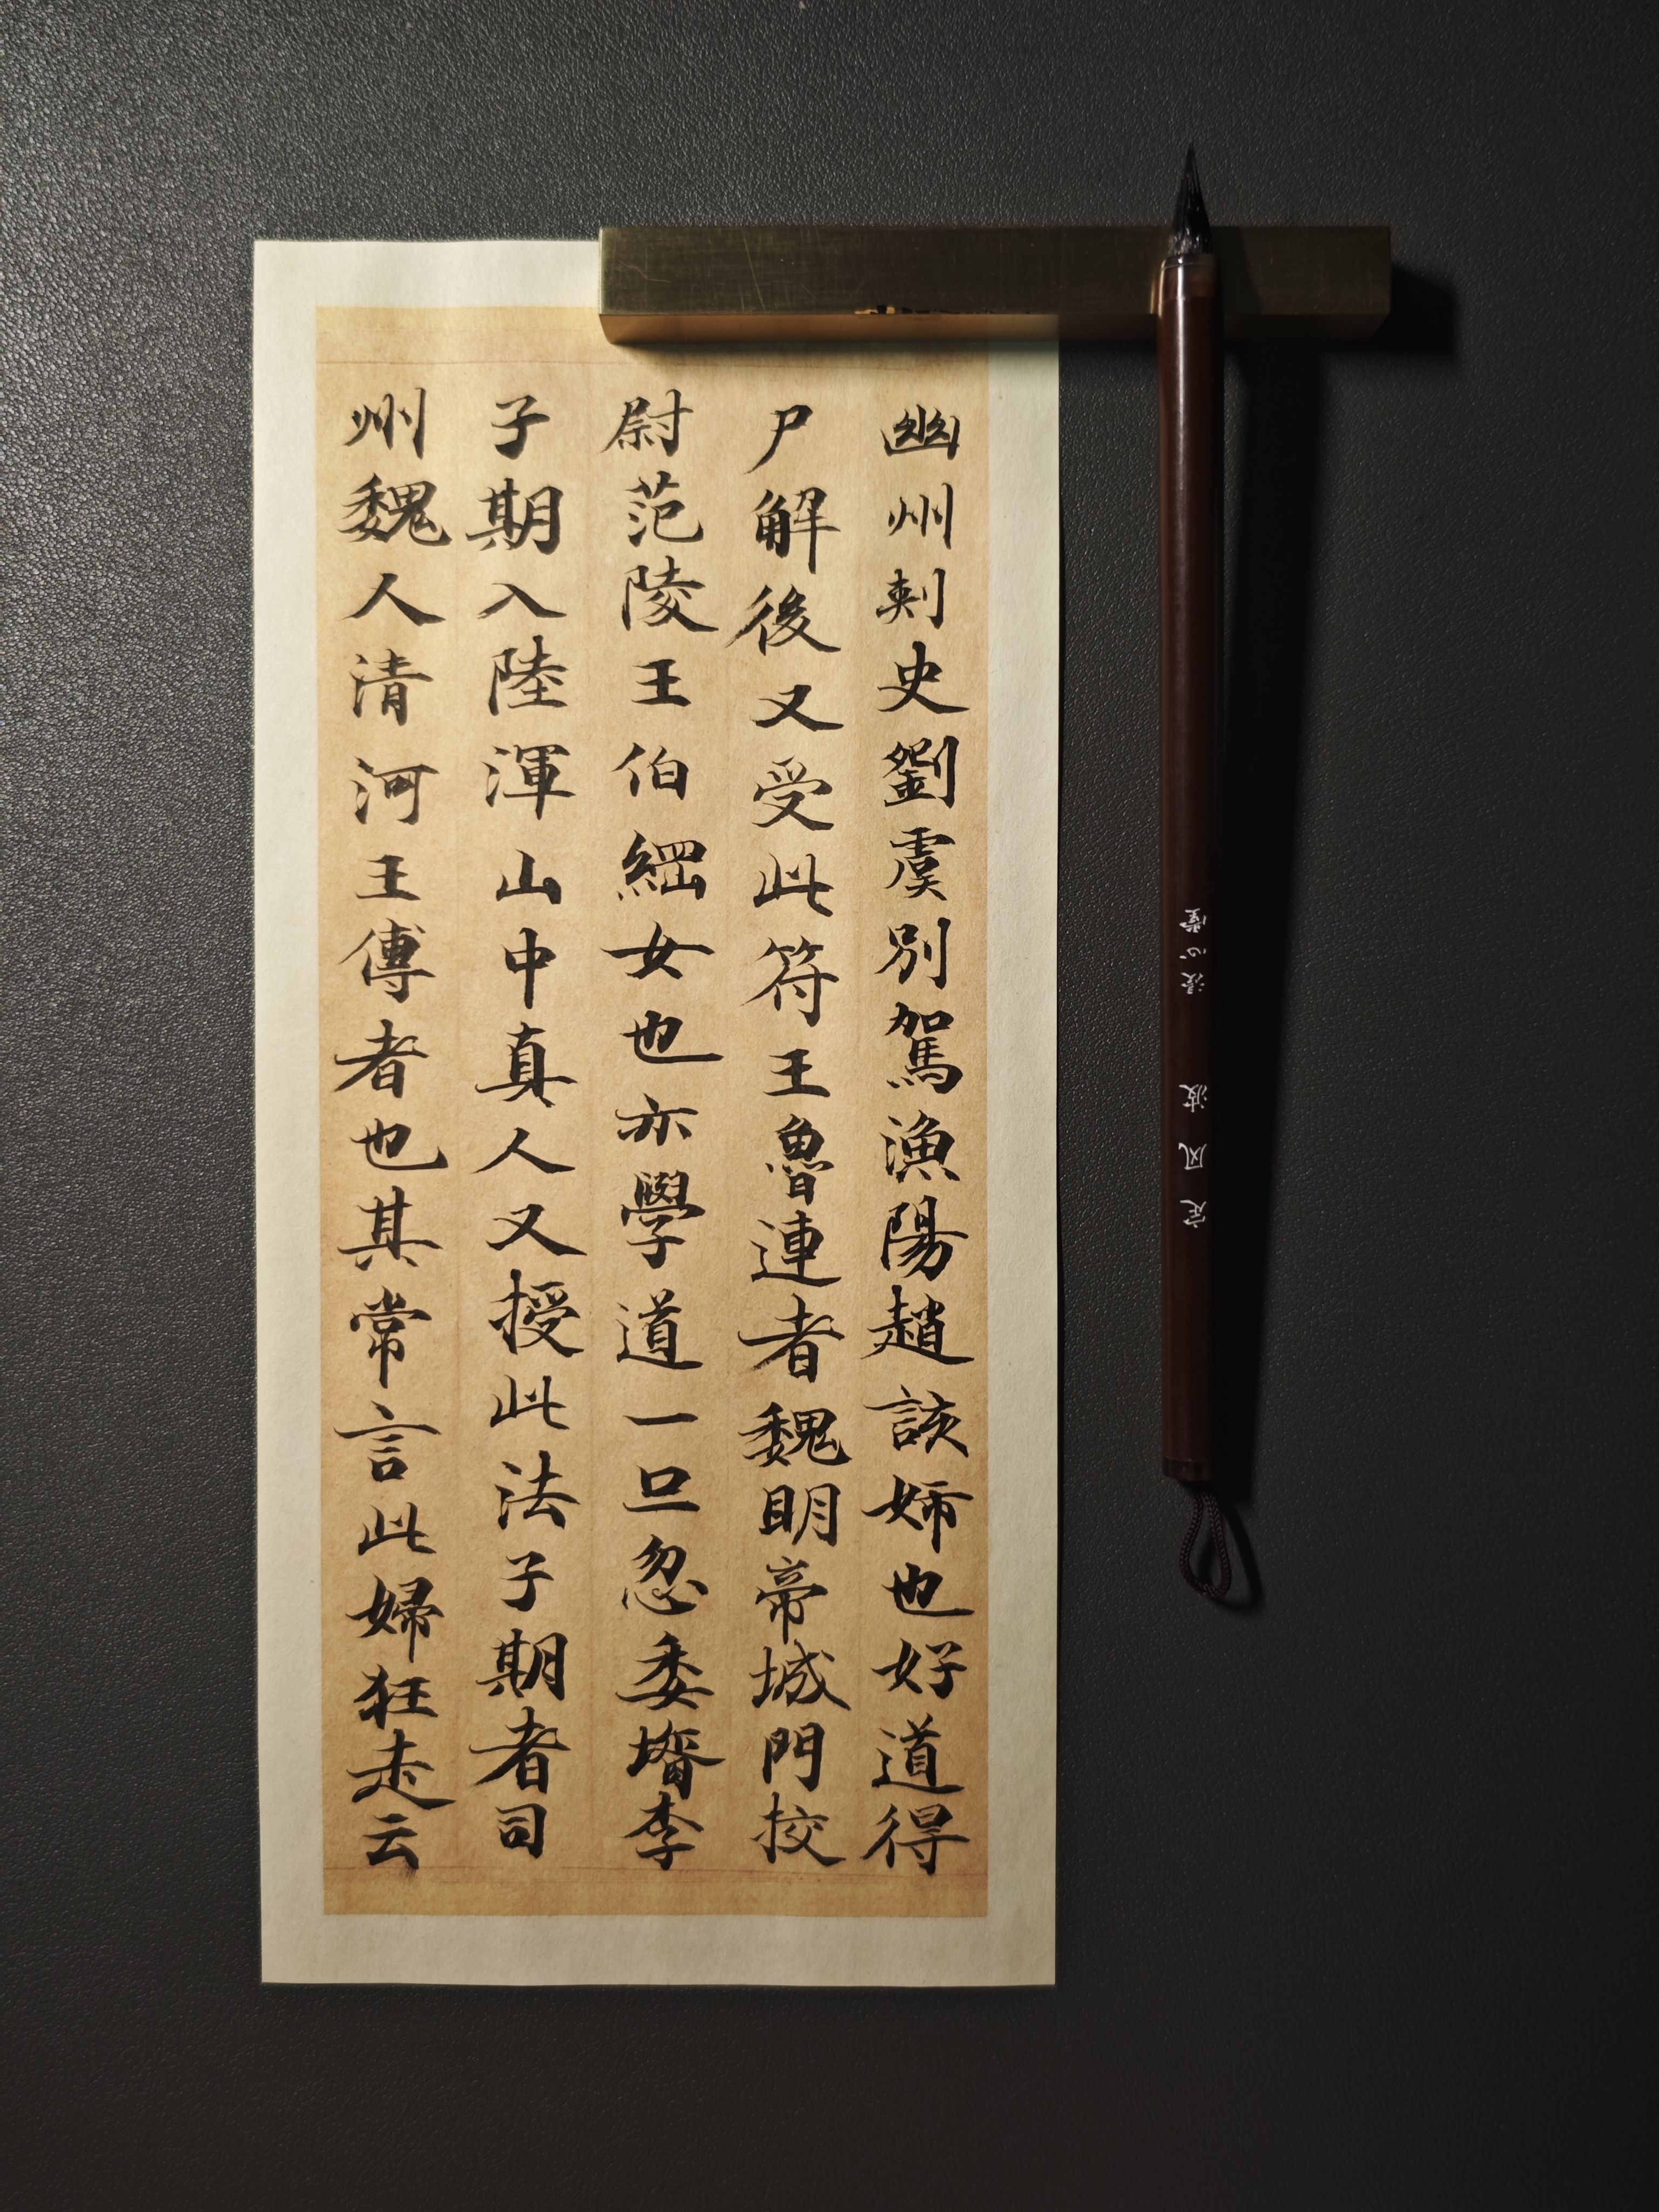 幽州刺史劉虞別駕漁陽趙該姉也好道得
尸解後又受此符王魯連者魏明帝城門挍
尉范陵王伯綱女也亦學道一旦忽委壻李
子期入陸渾山中真人又授此法子期者司
州魏人清河王傅者也其常言此婦狂走云
定风波 漫心堂